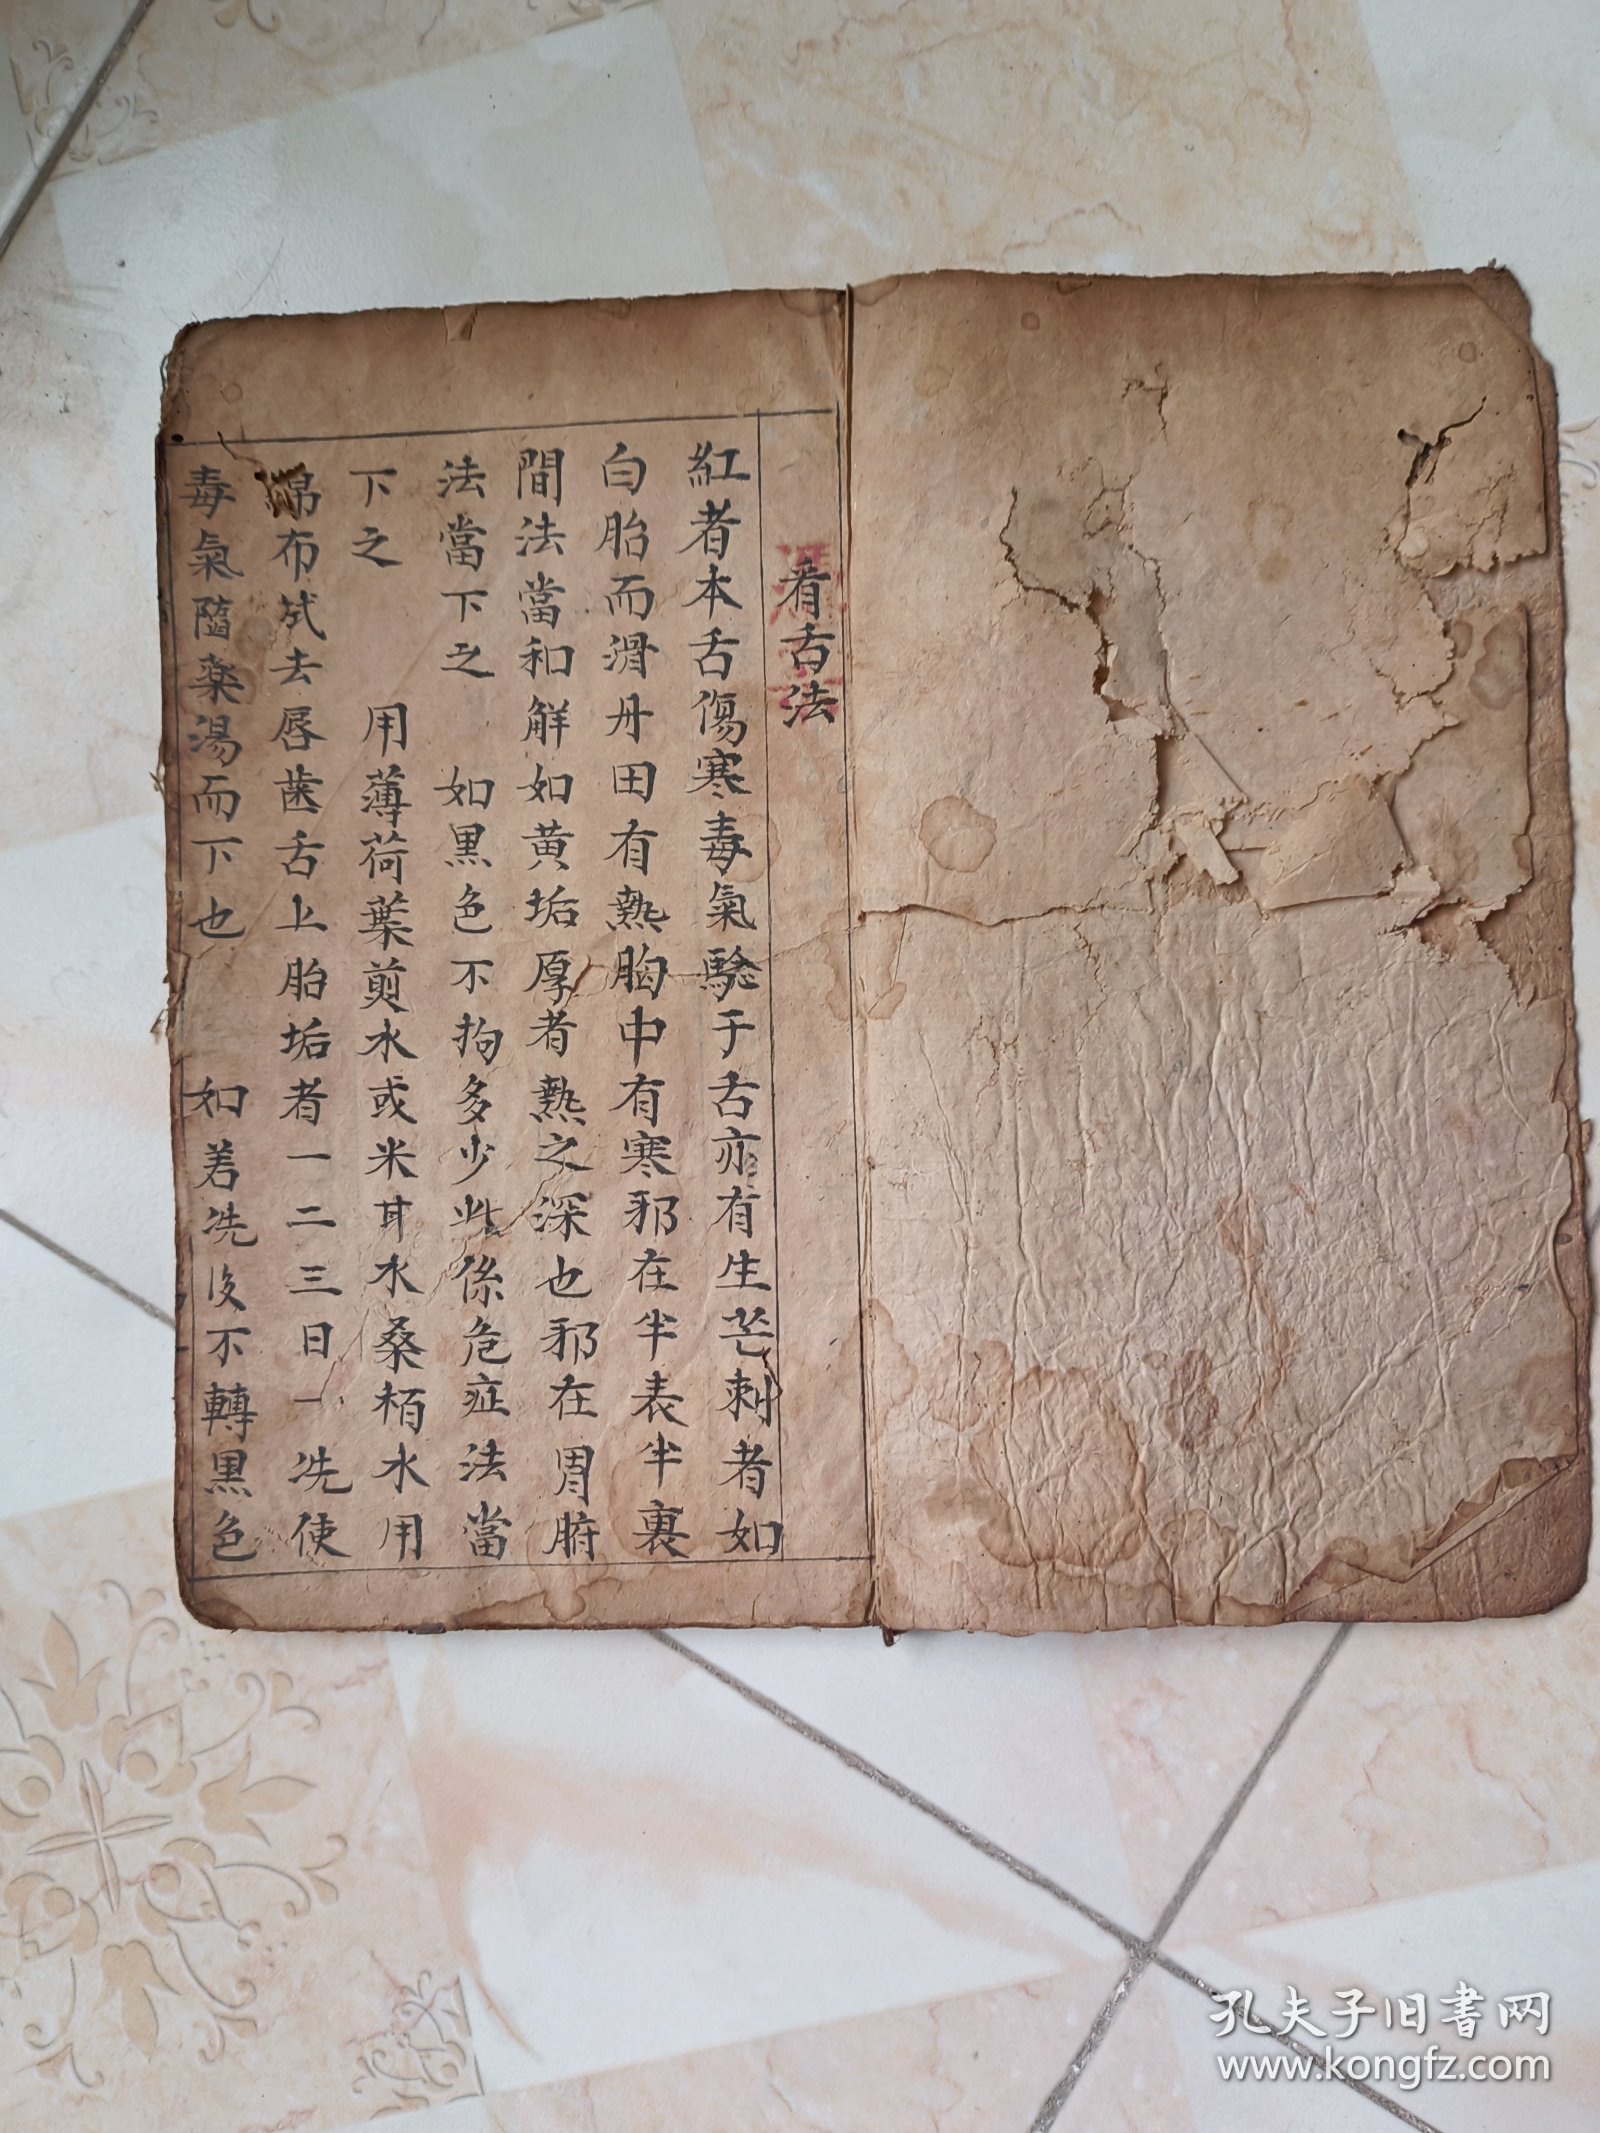 看舌法
紅者本舌傷寒毒氣驗于舌亦有生芒刺者如
白胎而滑丹田有熱胸中有寒邪在半表半裏
間法當和解如黃垢厚者熱之深也邪在胃腑
法當下之 如黑色不拘多少此係危症法當
下之 用薄荷葉煎水或米甘水桑栢水用
帛布拭去唇齒舌上胎垢者一二三日一洗使
毒氣隨藥湯而下也 如若洗後不轉黑色
孔夫子旧书网
www.kongfz.com